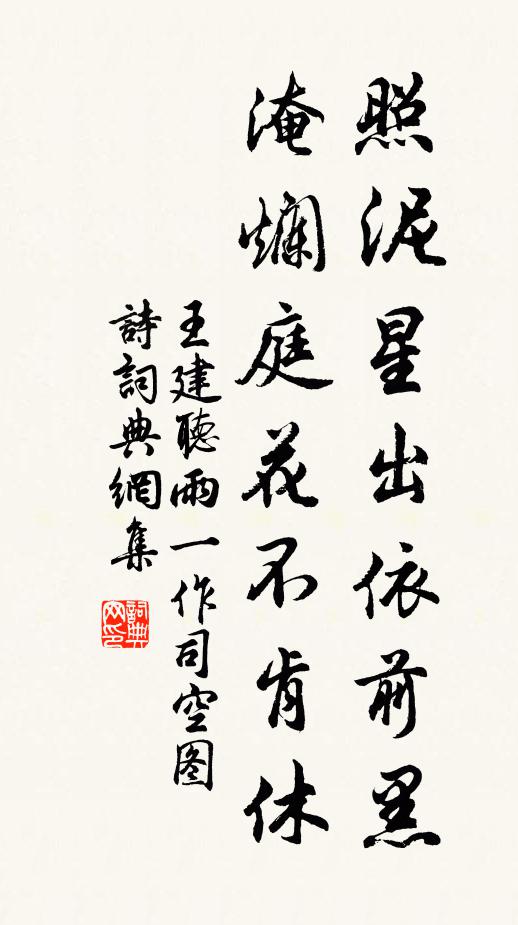 照泥星出依前黑
淹爛庭花不肯休
王建聽雨一作司空图
詩詞典網集
詞典网印